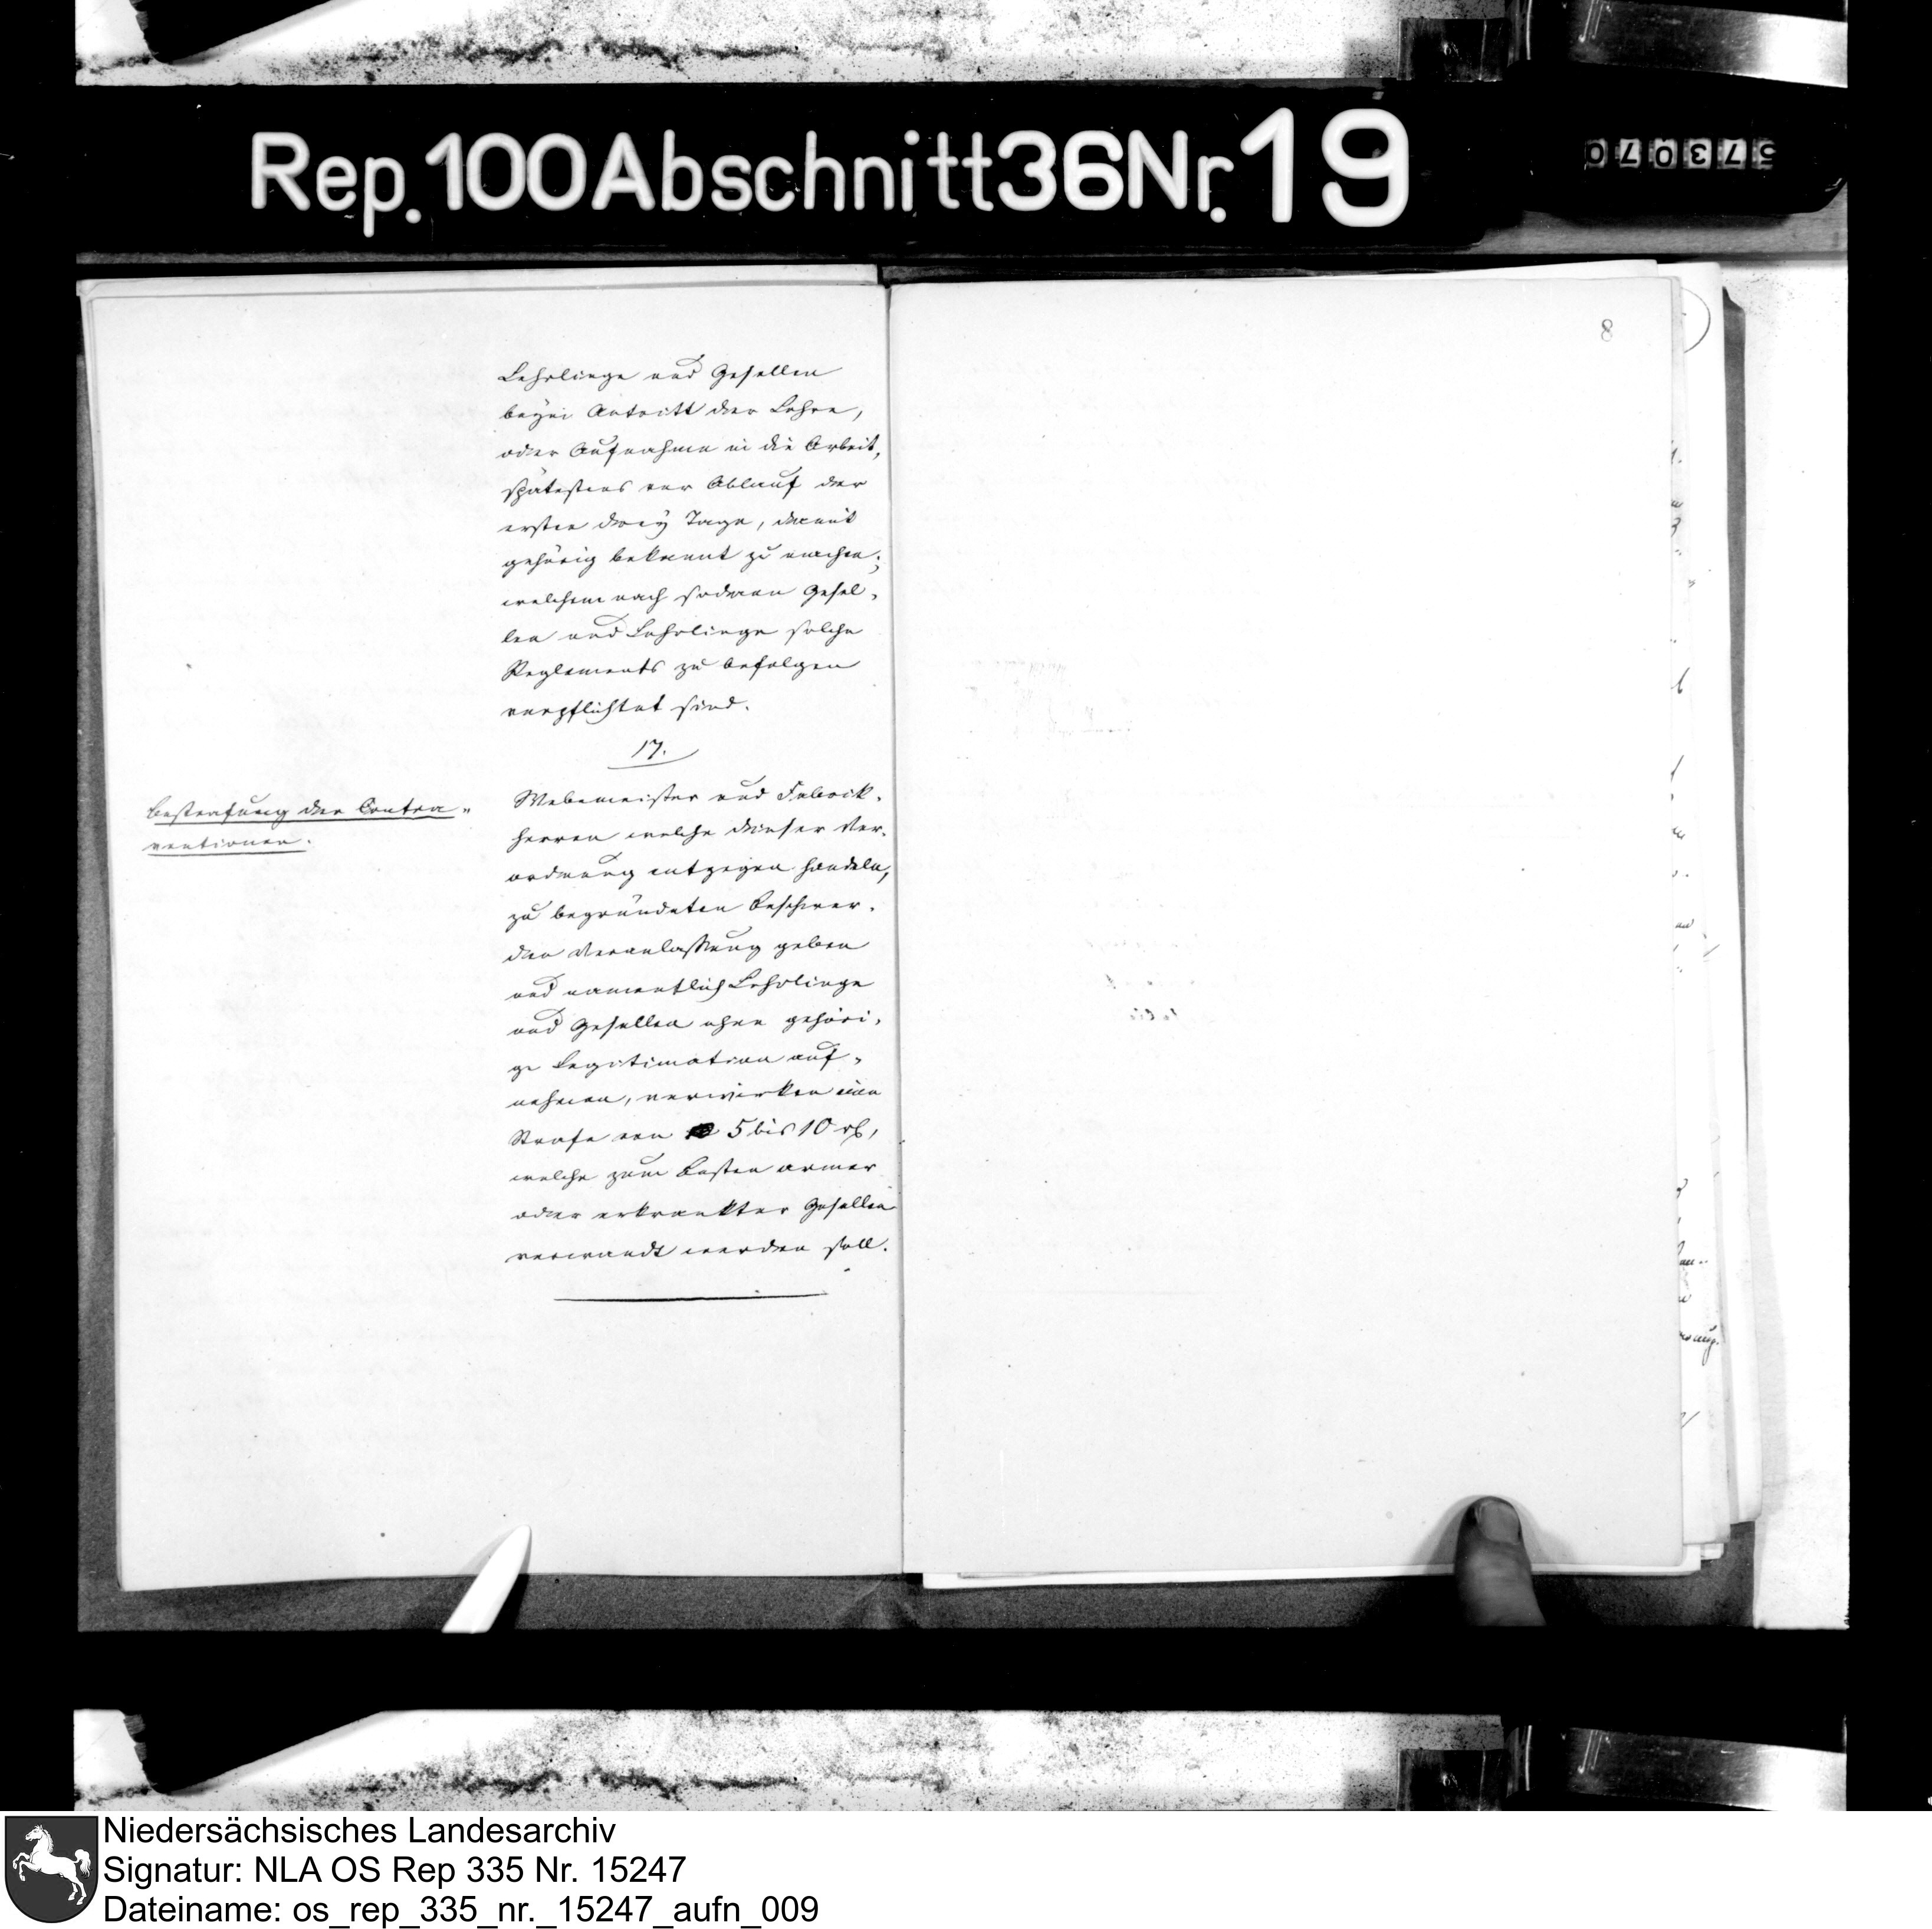 Rep. 100 Abschnitt 36 Nr. 19
573070
8
Lehrlinge und Gesellen
beym Antritt der Lehre,
oder Aufnahme in die Arbeit,
spätestens vor Ablauf der
ersten drey Tage, damit
gehörig bekannt zu machen;
welchem nach sodann Gesel-
len und Lehrlinge solche
Reglements zu befolgen
verpflichtet sind.
17.
Bestrafung der Contra-
ventionen.
Webemeister und Fabrik-
herren welche dieser Ver-
ordnung entgegen handeln,
zu begründeten Beschwer-
den Veranlassung geben
und namentlich Lehrlinge
und Gesellen ohne gehöri-
ge Legitimation auf-
nehmen, verwirken eine
Strafe von 5 bis 10 rth,
welche zum Besten armer
oder erkrankter Gesellen
verwandt werden soll.
Niedersächsisches Landesarchiv
Signatur: NLA OS Rep 335 Nr. 15247
Dateiname: os_rep_335_nr._15247_aufn_009